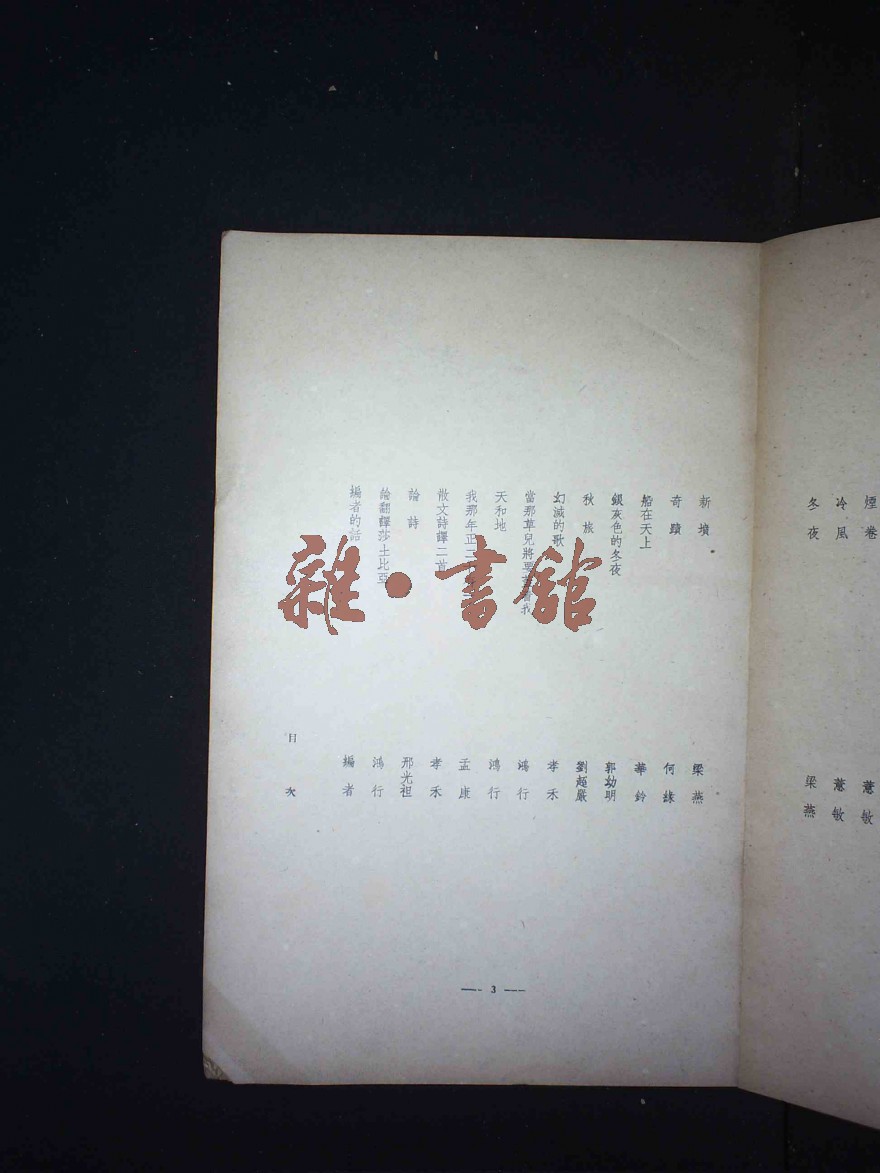 煙卷 薏敏
冷風 薏敏
冬夜 梁燕
新墳 梁燕
奇蹟 何緣
船在天上 華鈴
銀灰色的冬夜 郭幼明
秋旅 劉超嚴
幻滅的歌 孝禾
當那草兒將要 我 鴻行
天和地 鴻行
我那年正二 孟康
散文詩譯二首 孝禾
論詩 邢光祖
論翻譯莎士比亞 鴻行
編者的話 編者
目次
— 3 —
雜·書館